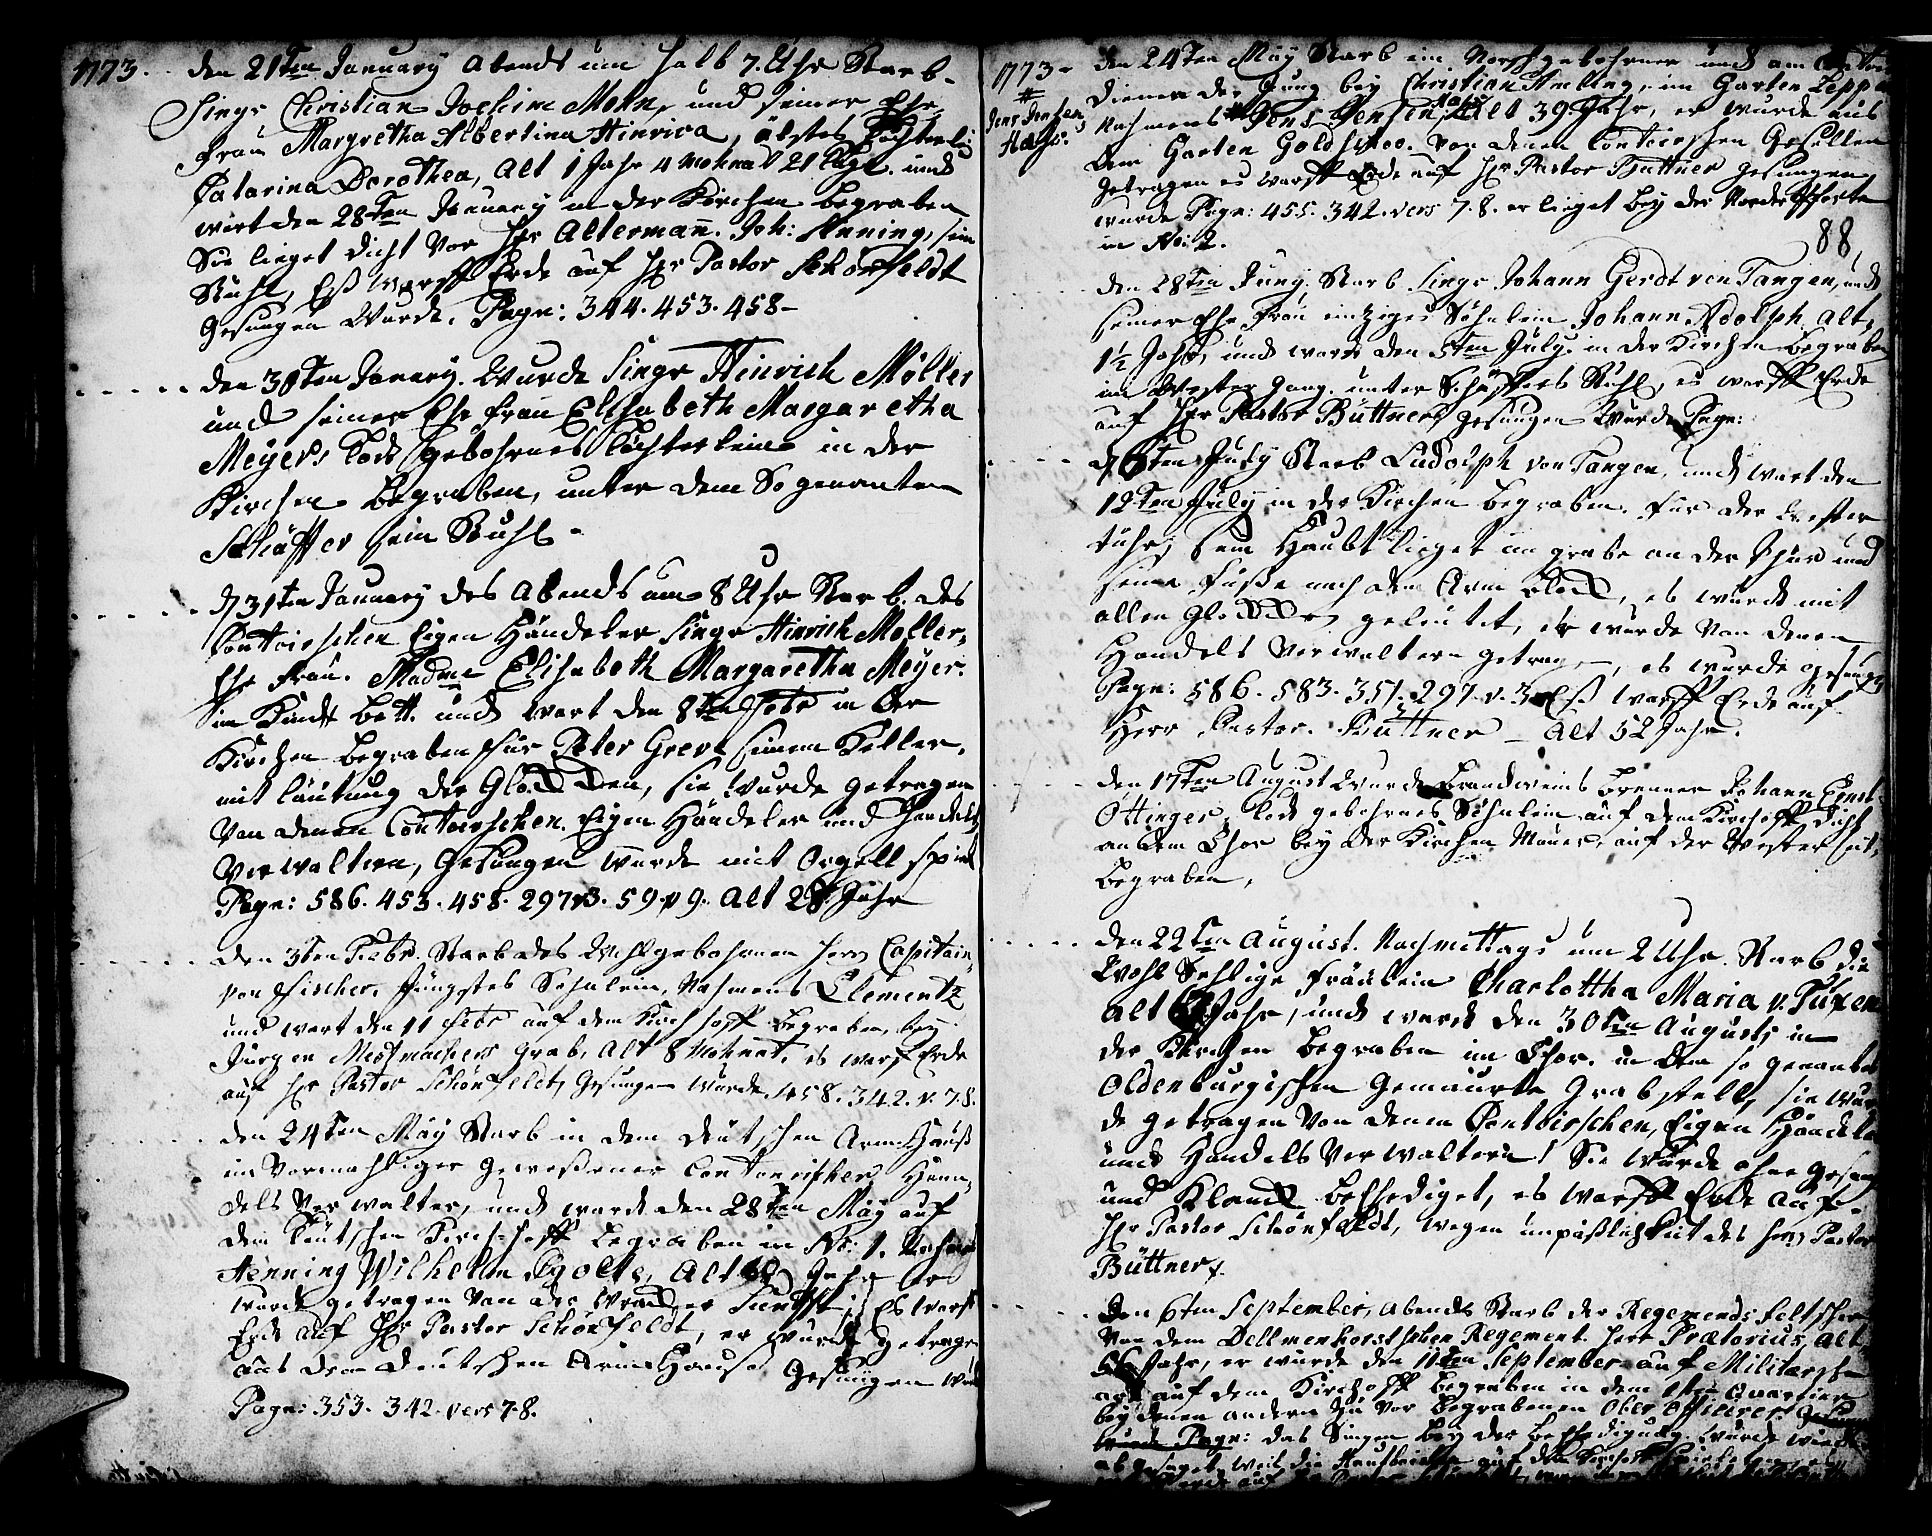 1773. den 21ten January abends um halb 7. Uhr Starb
Singr Christian Jochim Mohn, und seiner Ehe
frau Margretha Albertina Hinrica, älstes Töchterlein
Catarina Dorothea, alt 1 Jahr 4 Mohnat 21 Tage. und
wart den 28ten January in der Kirchen begraben,
Sie lieget dicht vor Hr Altermañ. Joh: Anning, sein
Stuhl, Eß warff Erde auf Hr Pastor Schönfeldt
Gesungen Wurde. Pagn: 344. 453. 458-
den 30ten January. Wurde Singr Hinrich Möller
und seiner Ehe frau Elisabeth Margaretha
Meyers todt gebohrnes töchterlein in der
Kirchen begraben, unter dem So genanten
Schäffer sein Stuhl
d 31ten January des abends um 8 Uhr Starb des
Contoirschen Eigen Händeler Singr Hinrich Möller
Ehe frau. Madme Elisabeth Margaretha Meyer.
im Kindt bett. und wart den 8ten Febr in der
Kirchen begraben für Peter Greve seinem Keller.
mit läutung der Glocken, sie wurde getragen
Von denen Contoirschen. Eigen Händeler und Handels
Verwaltern, Gesungen wurde mit Orgell spiel
Pagn: 586. 453. 458. 297 v3. 59. v 9. alt 28 Jahr
den 3ten Febr. Starb des Wohlgebohrnen Herrn Capitain
von Fischer. Jüngstes Söhnlein, Nahmens Clementz
und wart den 11 Febr auf dem Kirchhoff begraben, bey
Jürgen Mestmachers grab, alt 8 Mohnat. es warf Erde
auf Hr Pastor Schönfeldt, Gesungen wurde 458. 342. v. 7.8.
den 24ten May Starb in dem Deutschen Arm Hauß
im Vormahliger geweßener Contoirischer Han
dels Verwalter, und wardt den 28ten May auf
dem Teutschen Kirch hoff begraben in No: 1. Nahmens
Henning Wilhelm, alt Jahr er
wurde getragen Von der es warf
Erde auf Hr Pastor Schönfeldt, er wurde getragen
aus dem deutschen Arm Hause gesungen wur
Pagn: 353. 342. vers 7.8.
1773- den 24ten May Starb ein Norsch gebohrner und am Contoir
Diener der Jung bey Christian Ameling, im Garten Leppe
Jens Jensen Hahs: Nahmens Jens Jensen Hahs alt 39 Jahr, er wurde aus
dem Garten Goldschoo. von denen Contoirschen Gesellen
getragen es warff Erde auf Hr Pastor Büttner gesungen
wurde Pagn: 455. 342. vers 7.8. er lieget bey der Norder Pforte
in No: 2.
88,
den 28ten Juny. Starb Singr Johann Gerdt von Tangen, und
seiner Ehe frau einziges Söhnlein Johann Adolph. alt,
1½ Jahr, und wardt den 5ten July in der Kirchen begraben
im Wester gang. unter Schäffers Stuhl, es warff Erde
auf Hr Pastor Büttner, gesungen Wurde Pagn:
d 6ten July Starb Ludolph von Tangen, und wart den
12ten July in der Kirchen begraben. für der Wester
tühr, sein Haubt lieget im grabe an der Thür und
seine füße nach dem Arm block, es wurde mit
allen Glocken geleutet, er wurde Von denen
Handels Verwaltern getragen, es wurde gesungen
Pagn: 586. 583. 351. 297. v. 3. Eß warff Erde auf
Herr Pastor. Büttner - alt 52 Jahr.
den 17ten August Wurde Brandweins brenner Johann Ernst
Ottinger todt gebohrnes Söhnlein auf dem Kirchoff dicht
an dem Chor bey der Kirchen Mauer, auf der Wester seit,
begraben,
den 22ten August. Nachmittags um 2 Uhr. Starb die
Wohl Sehlige fräulein Charlottha Maria v. Tüxen
alt Jahr, und wardt den 30ten Augusts in
der Kirchen begraben im Chor. in dem so genanten
Oldenburgischen Gemaurte Grabstelle, sie wur
de getragen Von denen Contoirschen, Eigen Händele
und Handels Verwaltern! Sie wurde ohne gesang
und Klanck behrdiget, es warff Erde auf
Hr Pastor Schönfeldt, wegen unpäßlichkeit des Herrn Pastor
Büttner.
den 6ten September, abends Starb der Regements feltscher
Von dem Dellmenhorstschen Regement. Herr Prætorius, alt
66 Jahr, er wurde den 11ten September auf Militarsche
art auf dem Kirchoff begraben in dem Quartier
bey denen andern zu vor begrabenen Ober Officirer gesungen
wurde Pagn: das Singen bey der behrdigung. wurde wieder
abgesaget weil die Hautboisten auf dem Kirchoff